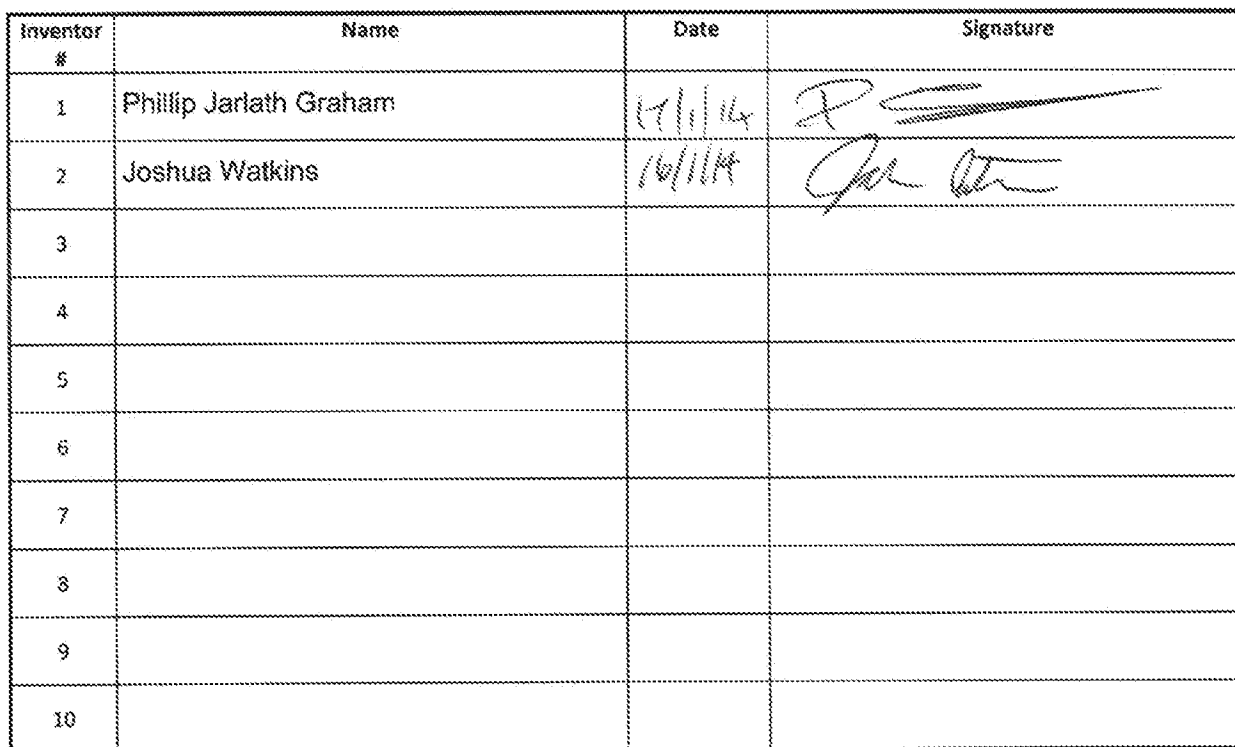 Inventor # Name Date Signature
1 Phillip Jarlath Graham 17/1/14
2 Joshua Watkins 16/1/14
3
4
5
6
7
8
9
10